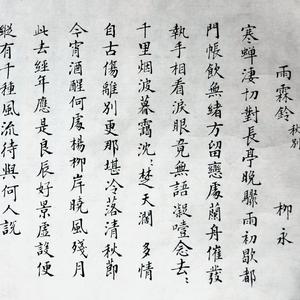 雨霖鈴 秋別
柳永
寒蟬淒切對長亭晚驟雨初歇都
門帳飲無緒方留戀處蘭舟催發
執手相看淚眼竟無語凝噎念去：
千里烟波暮靄沈：楚天濶 多情
自古傷離別更那堪冷落清秋節
今宵酒醒何處楊柳岸曉風殘月
此去經年應是良辰好景虛設便
縱有千種風流待與何人說